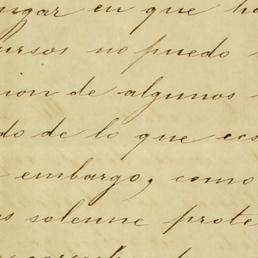 ugar en que ha
ursos no puedo
cion de algunos
do de lo que ecs
embargo, como
as solemne prote